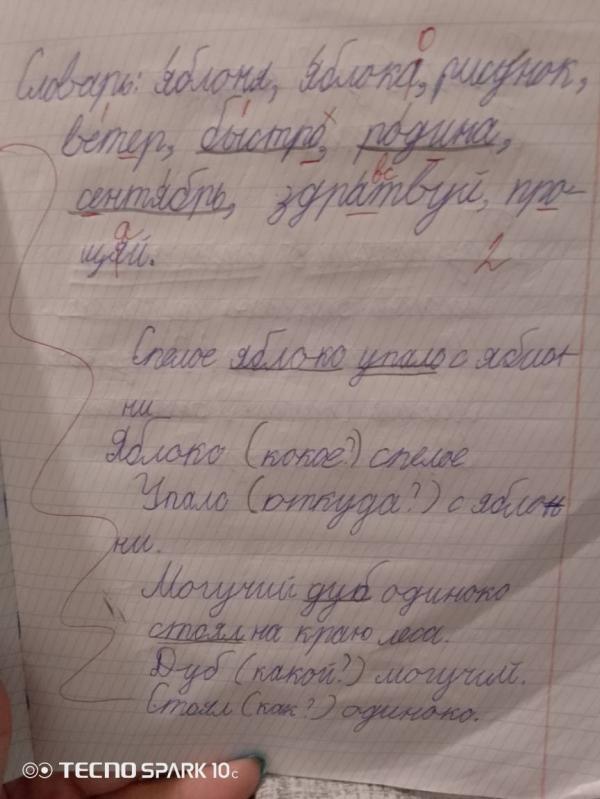 Словарь: Яблоня, Яблока, рисунок,
о
ветер, быстро, родина,
вс
сентябрь, здратвуй, про-
а
щяй.
2
Спелое яблоко упало с яблон
ни
Яблоко (кокое?) спелое
Упало (откуда?) с яблон
ни.
Могучий дуб одиноко
стоял на краю леса.
Дуб (какой?) могучий.
Стоял (как?) одиноко.
TECNO SPARK 10c